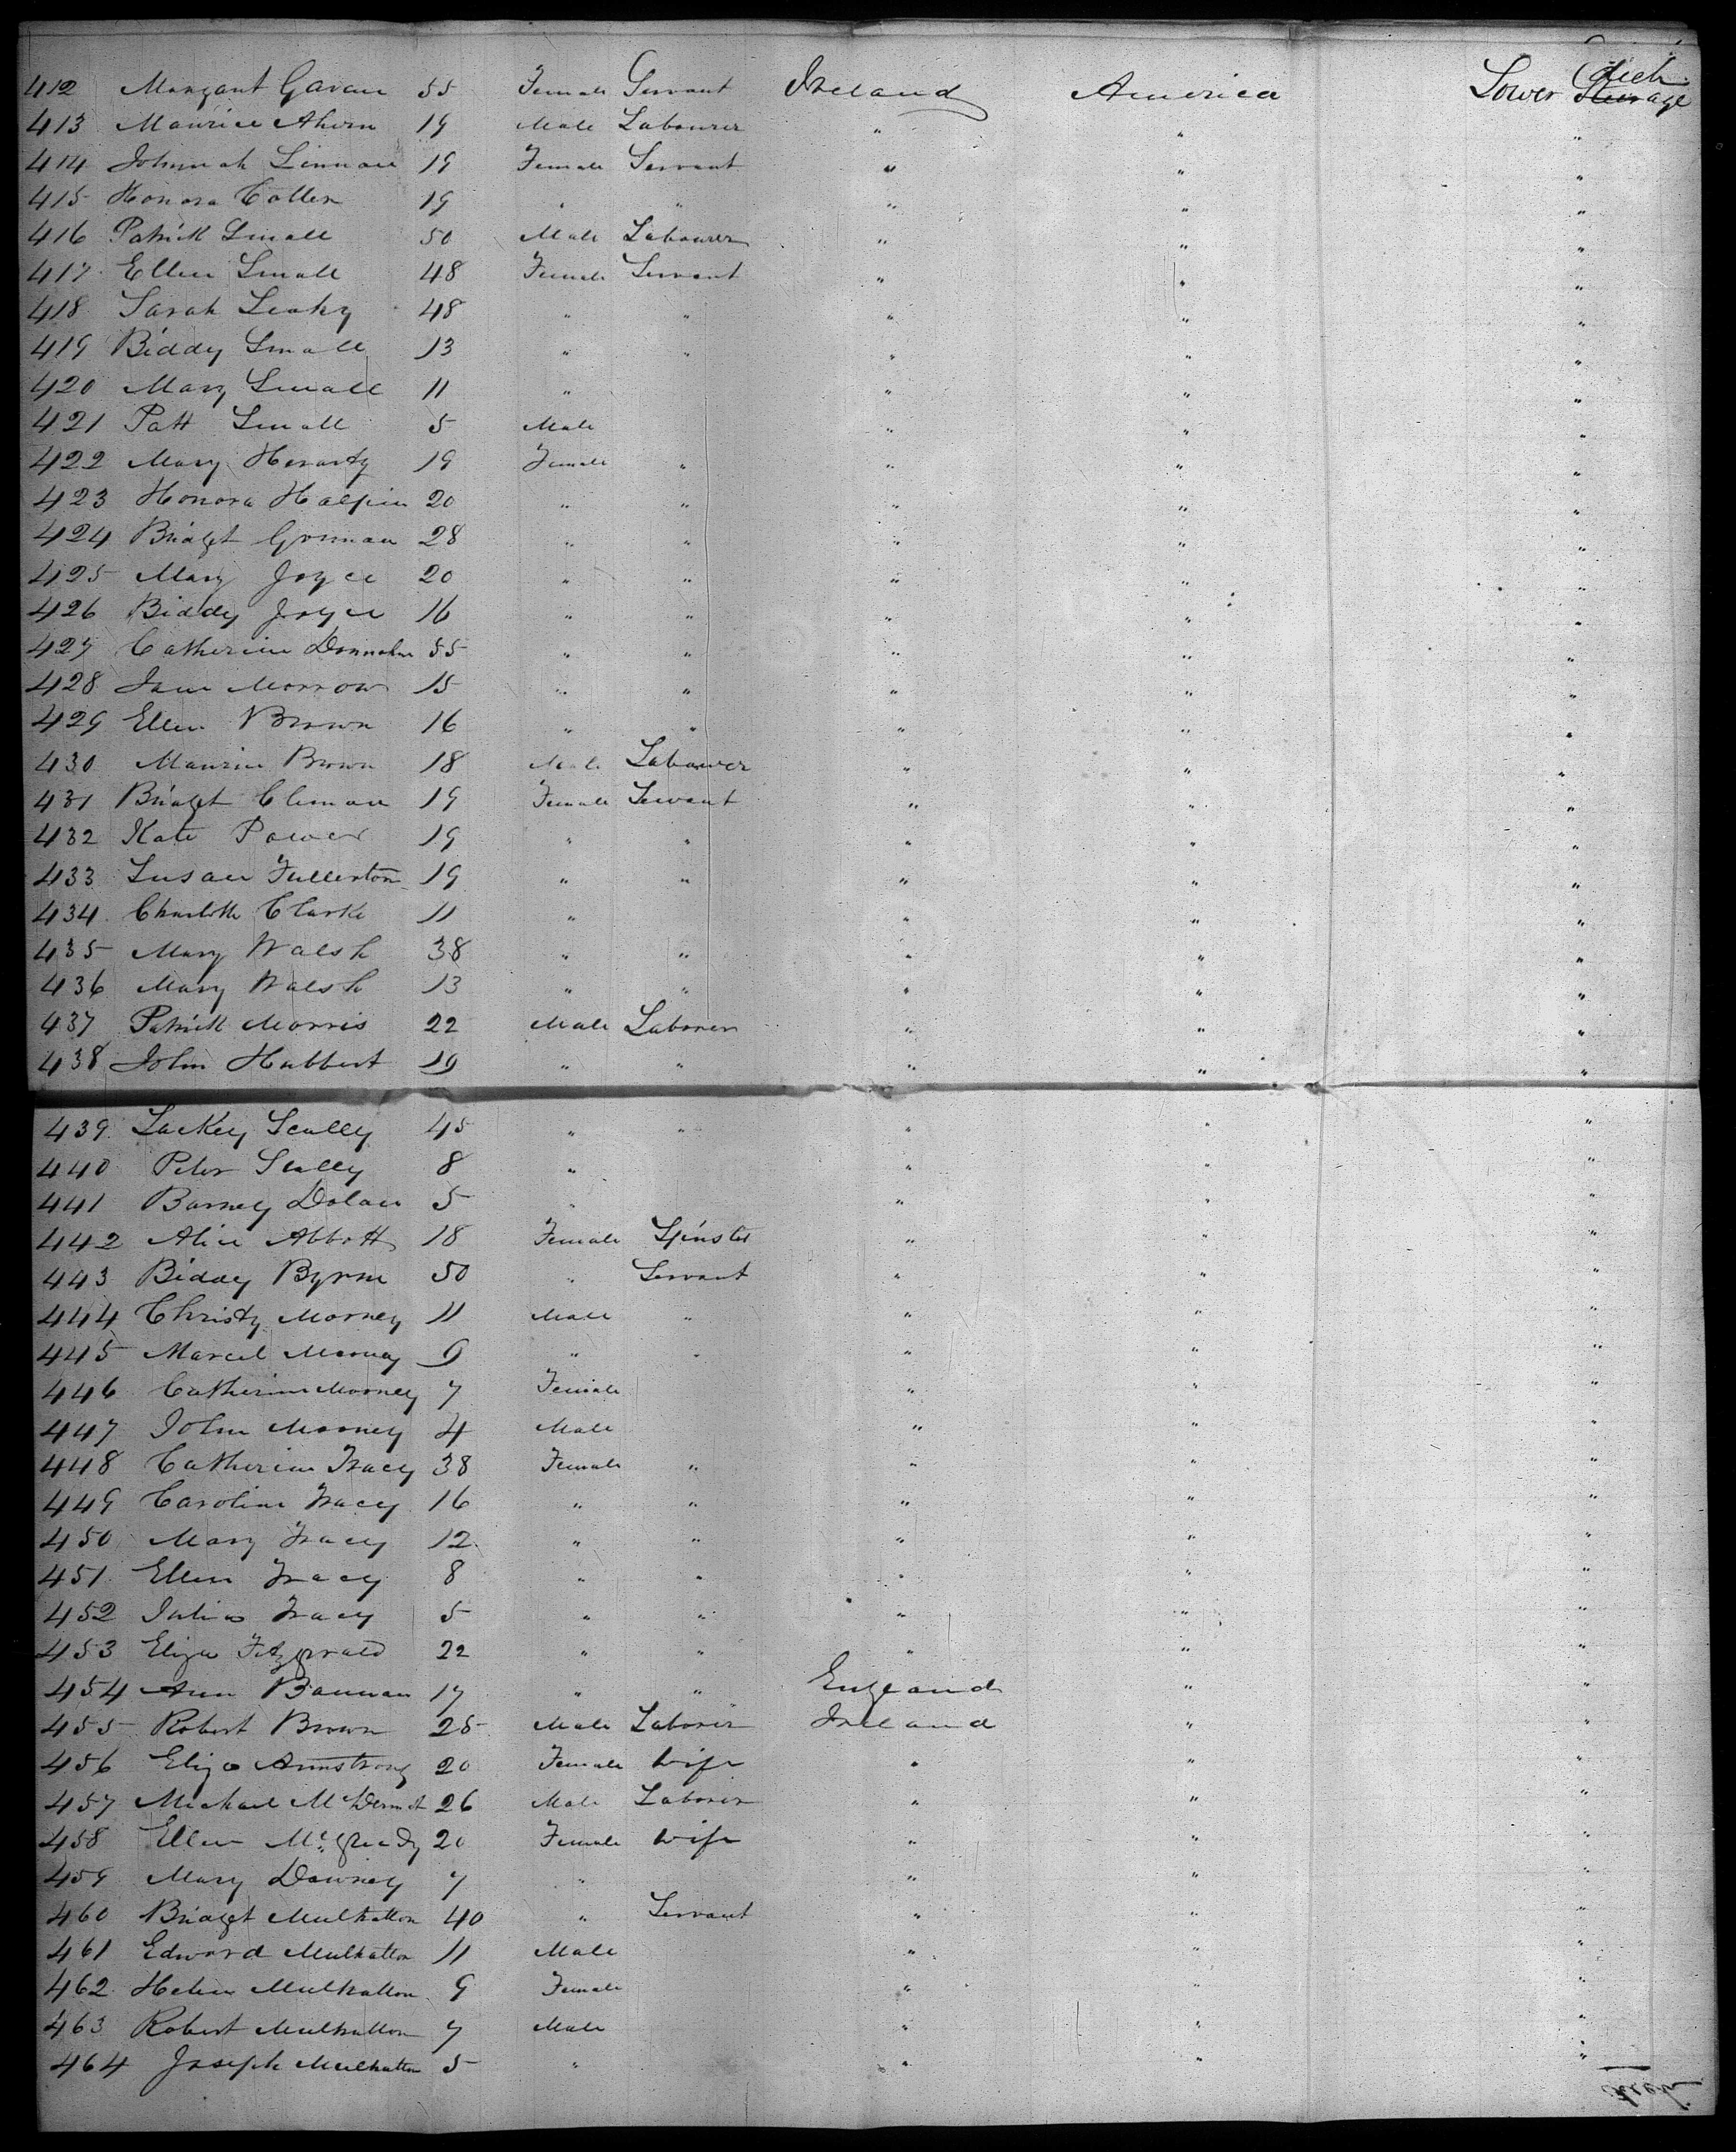 412 Margant Gavan 55 Female Servant Ireland America Lower Steerage Deck
413 Maurice Ahern 19 Male Labourer " " "
414 Johnnah Linnan 19 Female Servant " " "
415 Honora Collen 19 " " " " "
416 Patrick Small 50 Male Labourer " " "
417 Ellen Small 48 Female Servant " " "
418 Sarah Leahy 48 " " " " "
419 Biddy Small 13 " " " " "
420 Mary Small 11 " " " "
421 Patt Small 5 Male " " "
422 Mary Herarty 19 Female " " " "
423 Honora Halpin 20 " " " " "
424 Bridget Gorman 28 " " " " "
425 Mary Joyce 20 " " " " "
426 Biddy Joyce 16 " " " " "
427 Catherine 55 " " " " "
428 Jane Morrow 15 " " " " "
429 Ellen Brown 16 " " " " "
430 Maurice Brown 18 Male Labourer " " "
431 Bridget Climan 19 Female Servant " " "
432 Kate Power 19 " " " " "
433 Susan Fullerton 19 " " " " "
434 Charlotte Clarke 11 " " " "
435 Mary Walsh 38 " " " " "
436 Mary Walsh 13 " " " " "
437 Patrick Morris 22 Male Laborer " " "
438 John Hubbert 19 " " " " "
439 Lackey Scully 45 " " " " "
440 Peter Scully 8 " " " "
441 Barney Dolan 5 " " " "
442 Alice Abbott 18 Female Spinster " " "
443 Biddy Byrne 50 " Servant " " "
444 Christy Morney 11 Male " " " "
445 Marcel Morney 9 " " " " "
446 Catherine Morney 7 Female " " "
447 John Morney 4 Male " " "
448 Catherine Tracy 38 Female " " " "
449 Caroline Tracy 16 " " " " "
450 Mary Tracy 12 " " " " "
451 Ellen Tracy 8 " " " " "
452 Julia Tracy 5 " " " " "
453 Eliza Fitzgerald 22 " " " " "
454 Ann Bannan 17 " " England " "
455 Robert Brown 25 Male Laborer Ireland " "
456 Eliza Armstrong 20 Female Wife " " "
457 Michael McDermot 26 Male Laborer " " "
458 Ellen McGready 20 Female Wife " " "
459 Mary Downey 7 " " " "
460 Bridget Mulhatton 40 " Servant " " "
461 Edward Mulhatton 11 Male " " "
462 Helen Mulhatton 9 Female " " "
463 Robert Mulhatton 7 Male " " "
464 Joseph Mulhatton 5 " " " "